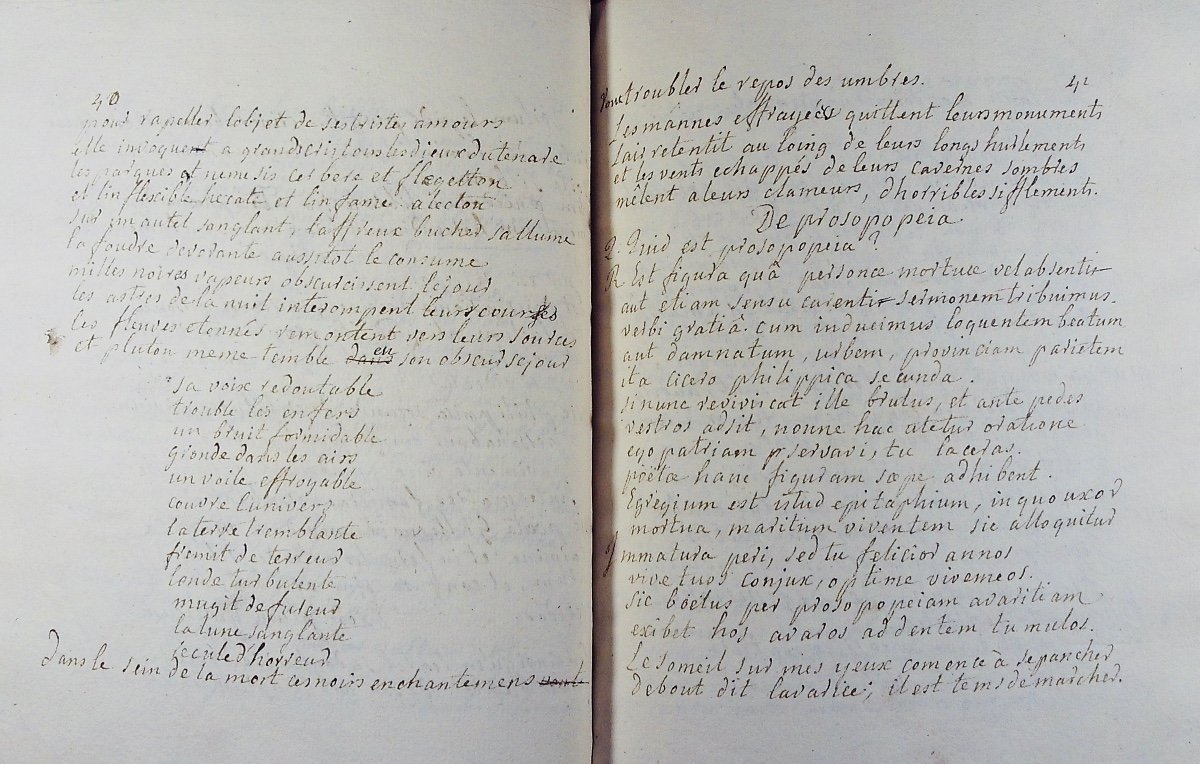 40
pour rapeller lobjet de ses tristes amours
elle invoquent a grands cris tous les dieux du ténare
les parques nemesis cerbere et flegetton
et linflexible hecate et linfame alecton
sur un autel sanglant, laffreux bucher sallume
la foudre devorante aussitot le consume
milles noires vapeurs obscurcissent lejour
les astres de la nuit interompent leurs courses
les fleuves etonnés remontent vers leurs sources
et pluton meme temble dans en son obscur sejour
sa voix redoutable
trouble les enfers
un bruit formidable
gronde dans les airs
un voile effroyable
couvre lunivers
la terre tremblante
fremit de terreur
londe turbulente
mugit de fureur
la lune sanglante
recule dhorreur
dans le sein de la mort ces noirs enchantemens vont
41
vont troubler le repos des umbres.
les mannes effrayéx quittent leurs monuments
lair retentit au loing de leurs longs hurlements
et les vents echappés de leurs cavernes sombres
mêlent a leurs clameurs, dhorribles sifflements.
De prosopopeia
Q. Quid est prosopopeia?
R Est figura quâ personæ mortuæ vel absenti
aut etiam sensu carenti sermonem tribuimus.
verbi gratiâ cum inducimus loquentem beatum
aut damnatum urbem, provinciam parietem
ita cicero philippica secunda.
si nunc reviviscat ille brutus, et ante pedes
vestros adsit, nonne hac utetur oratione
ego patriam pservavi, tu laceras.
poëtæ hanc figuram sæpe adhibent.
Egregium est istud epitaphium, in quo uxor
mortua, maritum viventem sic alloquitur
Immatura peri, sed tu felicior annos
vive tuos conjux, optime vive meos.
sic böetus per prosopopeiam avaritiam
exibet hos avaros ad dentem tumulos.
Le someil sur mes yeux comence à sepancher
debout dit lavarice; il est tems de marcher.